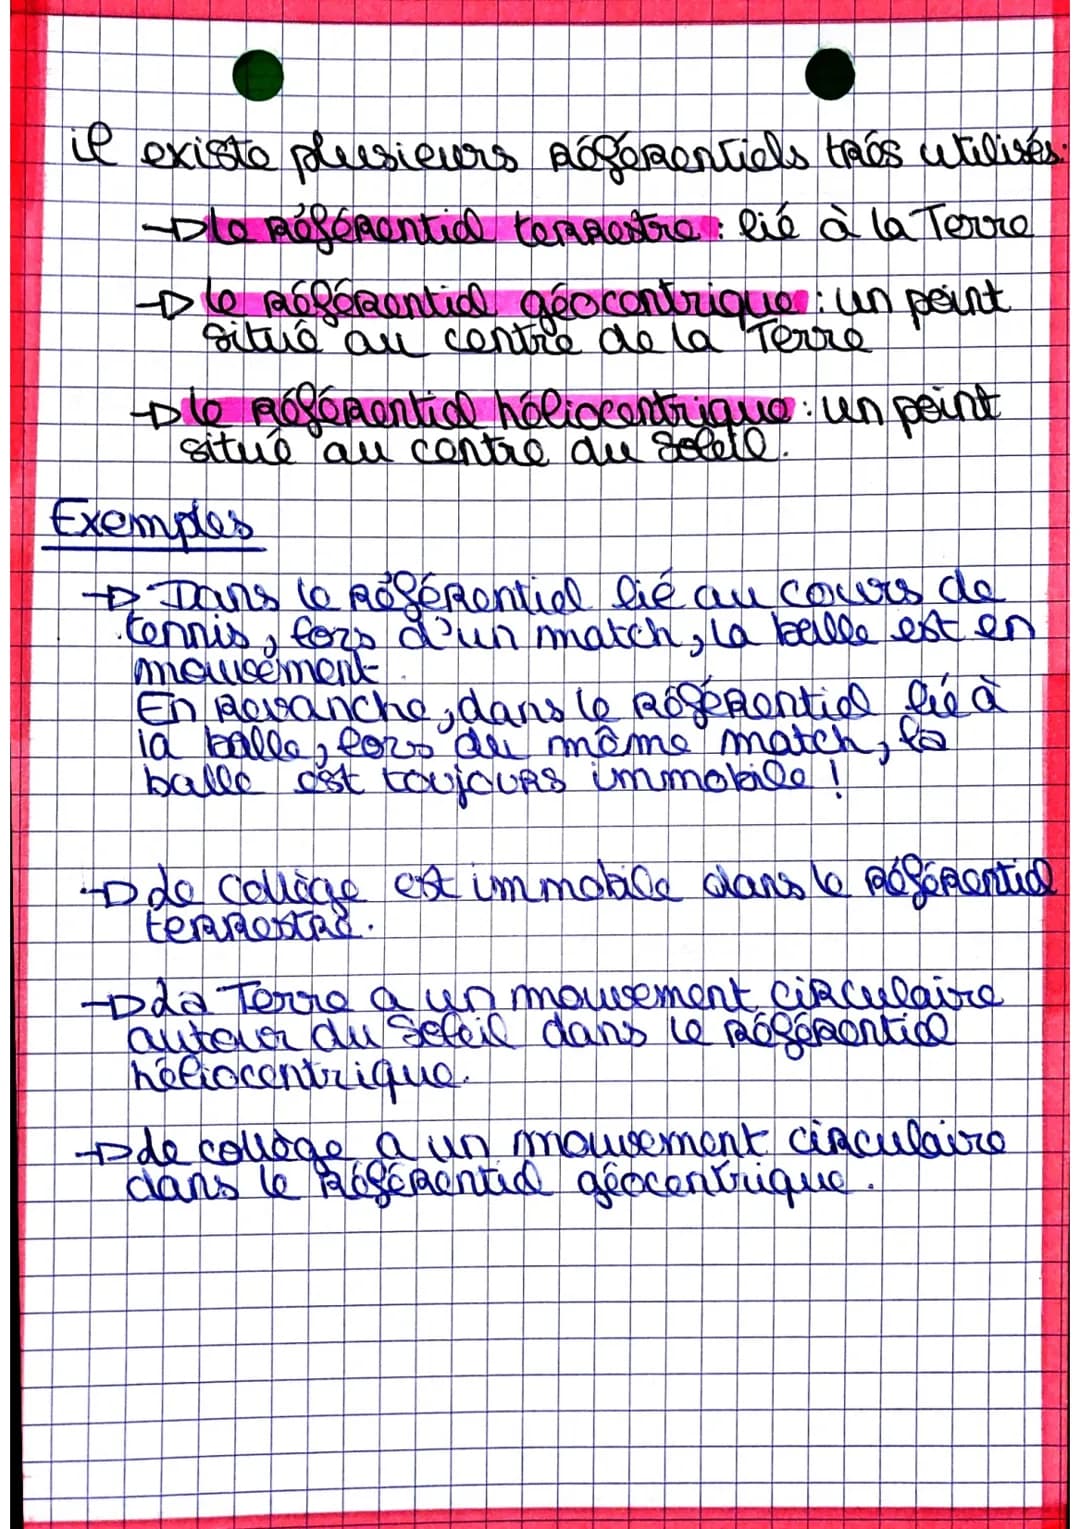 il existe plusieurs référentiels très utilisés:
→ le référentiel terrestre : lié à la Terre
→ le référentiel géocentrique : un point
situé au centre de la Terre
→ le référentiel héliocentrique : un point
situé au centre du Soleil.
Exemples
→ Dans le référentiel lié au cours de
tennis, lors d'un match, la balle est en
mouvement.
En revanche, dans le référentiel lié à
la balle, lors du même match, la
balle est toujours immobile !
→ Le collège est immobile dans le référentiel
terrestre.
→ La Terre a un mouvement circulaire
autour du Soleil dans le référentiel
héliocentrique.
→ Le collège a un mouvement circulaire
dans le référentiel géocentrique.